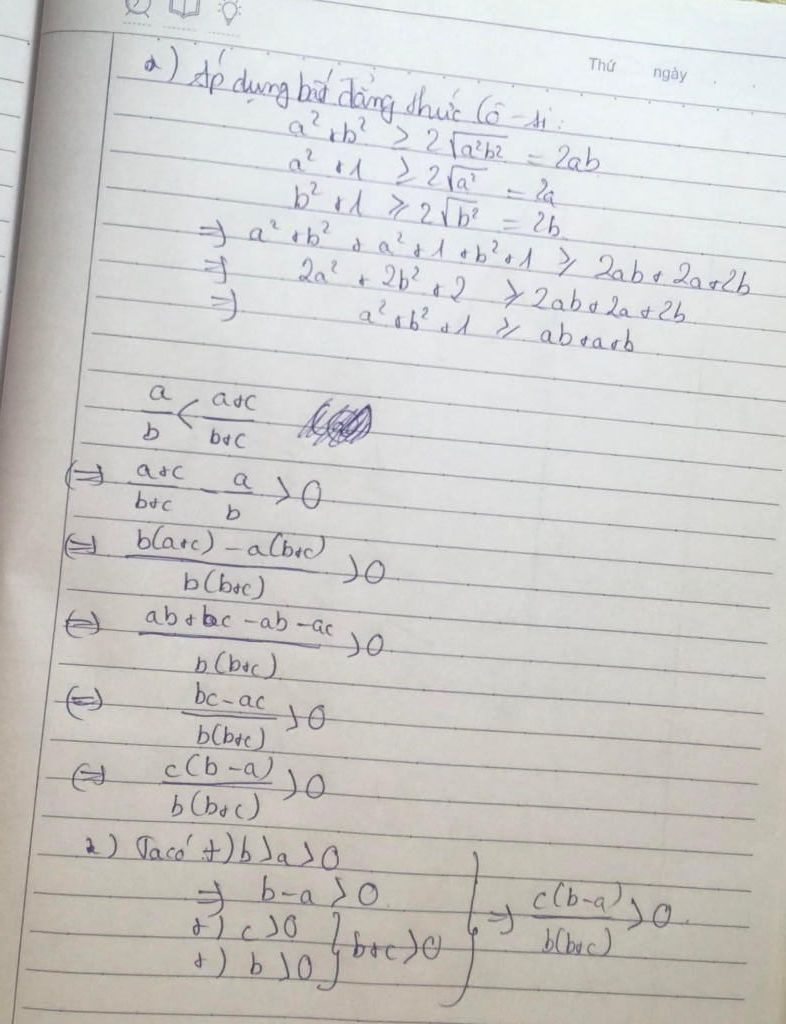 Thứ ngày
a) Áp dụng bất đẳng thức Cô-si:
a² + b² ≥ 2√(a²b²) = 2ab
a² + 1 ≥ 2√(a²) = 2a
b² + 1 ≥ 2√(b²) = 2b
⇒ a² + b² + a² + 1 + b² + 1 ≥ 2ab + 2a + 2b
⇒ 2a² + 2b² + 2 ≥ 2ab + 2a + 2b
⇒ a² + b² + 1 ≥ ab + a + b
a/b < (a+c)/(b+c)
⇔ (a+c)/(b+c) - a/b > 0
⇔ (b(a+c) - a(b+c))/(b(b+c)) > 0
⇔ (ab + bc - ab - ac)/(b(b+c)) > 0
⇔ (bc - ac)/(b(b+c)) > 0
⇔ (c(b-a))/(b(b+c)) > 0
2) Ta có +) b > a > 0
⇒ b - a > 0
+) c > 0
+) b > 0 } b+c > 0 } ⇒ (c(b-a))/(b(b+c)) > 0